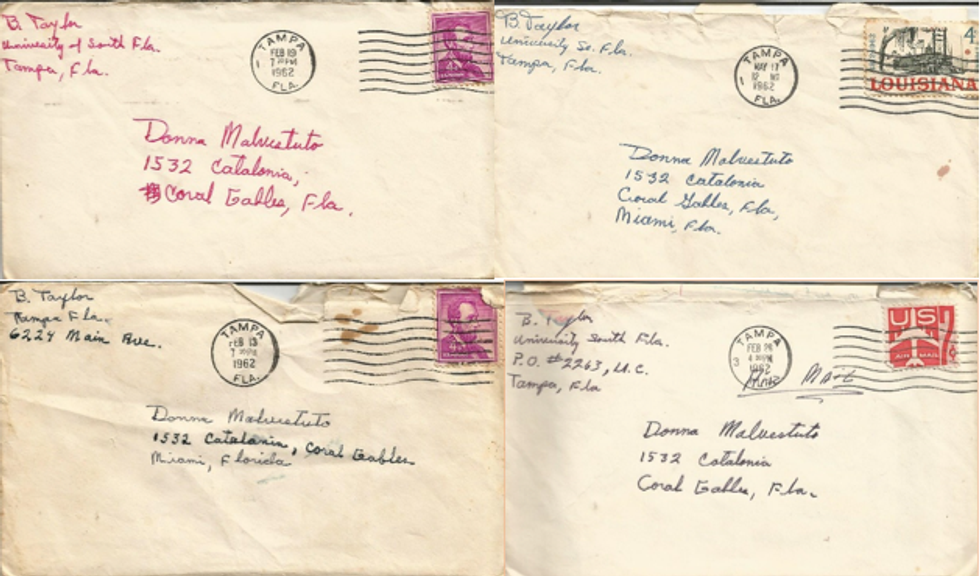 B. Taylor
University of South Fla.
Tampa, Fla.
TAMPA
FEB 19
PM
1962
FLA.
4¢
Donna Malvestuto
1532 Catalonia,
Coral Gables, Fla.
B. Taylor
University So. Fla.
Tampa, Fla.
TAMPA
MAY 17
12
1962
FLA.
1962
4¢
LOUISIANA
Donna Malvestuto
1532 Catalonia
Coral Gables, Fla,
Miami, Fla.
B. Taylor
Tampa Fla.
6224 Main Ave.
TAMPA
FEB 13
PM
1962
FLA.
4¢
Donna Malvestuto
1532 Catalania, Coral Gables
Miami, Florida
B. Taylor
University South Fla.
P.O. #2263, U.C.
Tampa, Fla
3
TAMPA
FEB
PM
1962
US
AIR MAIL
7¢
Air Mail
Donna Malvestuto
1532 Catalonia
Coral Gables, Fla.